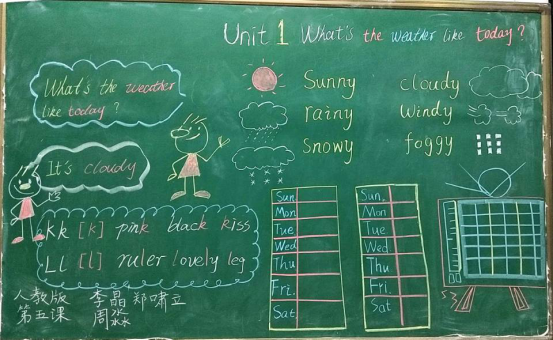 Unit 1 What's the weather like today?
What's the weather
like today?
Sunny cloudy
rainy windy
snowy foggy
It's cloudy
Kk [k] pink black kiss
Ll [l] ruler lovely leg
Sun.
Mon
Tue
Wed
Thu
Fri.
Sat.
Sun.
Mon
Tue
Wed.
Thu
Fri.
Sat
人教版 李晶 郑啸立
第五课 周淼